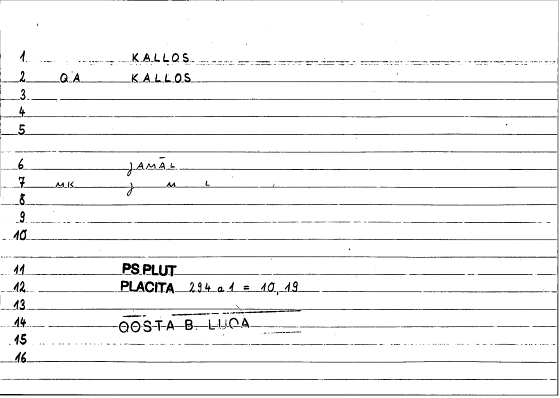 1 KALLOS
2 QA KALLOS
3
4
5
6 JAMĀL
7 MK J M L
8
9
10
11 PS.PLUT
12 PLACITA 294 a 1 = 10, 19
13
14 QOSTA B. LUQA
15
16